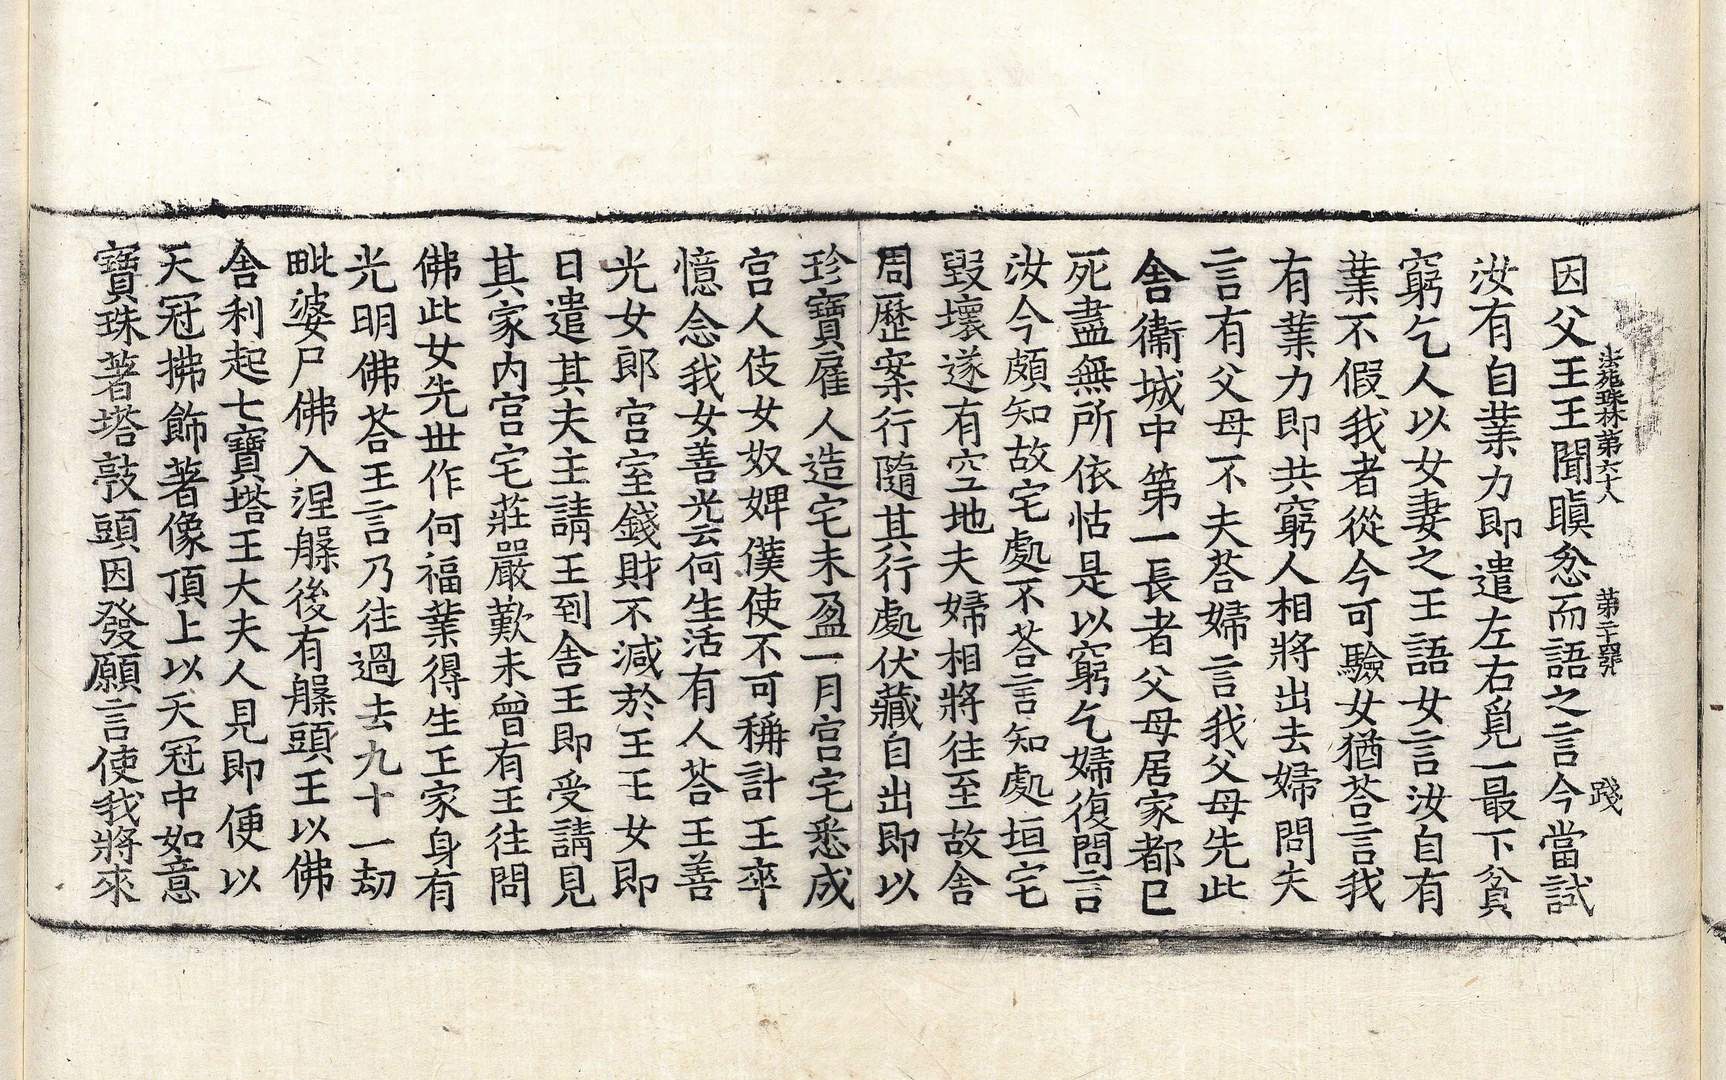 法苑珠林第六十八 第二十四張 踐
因父王王聞瞋忿而語之言今當試
汝有自業力即遣左右覓一最下貧
窮乞人以女妻之王語女言汝自有
業不假我者從今可驗女猶荅言我
有業力即共窮人相將出去婦問夫
言有父母不夫荅婦言我父母先此
舍衞城中第一長者父母居家都已
死盡無所依怙是以窮乞婦復問言
汝今頗知故宅處不荅言知處垣宅
毀壞遂有空地夫婦相將往至故舍
周歷案行隨其行處伏藏自出即以
珍寶雇人造宅未盈一月宮宅悉成
宮人伎女奴婢僕使不可稱計王卒
憶念我女善光云何生活有人荅王善
光女郎宮室錢財不減於王王女即
日遣其夫主請王到舍王即受請見
其家内宮宅莊嚴歎未曾有王往問
佛此女先世作何福業得生王家身有
光明佛荅王言乃往過去九十一劫
毗婆尸佛入涅槃後有槃頭王以佛
舍利起七寶塔王大夫人見即便以
天冠拂飾著像頂上以天冠中如意
寶珠著塔㪣頭因發願言使我將來